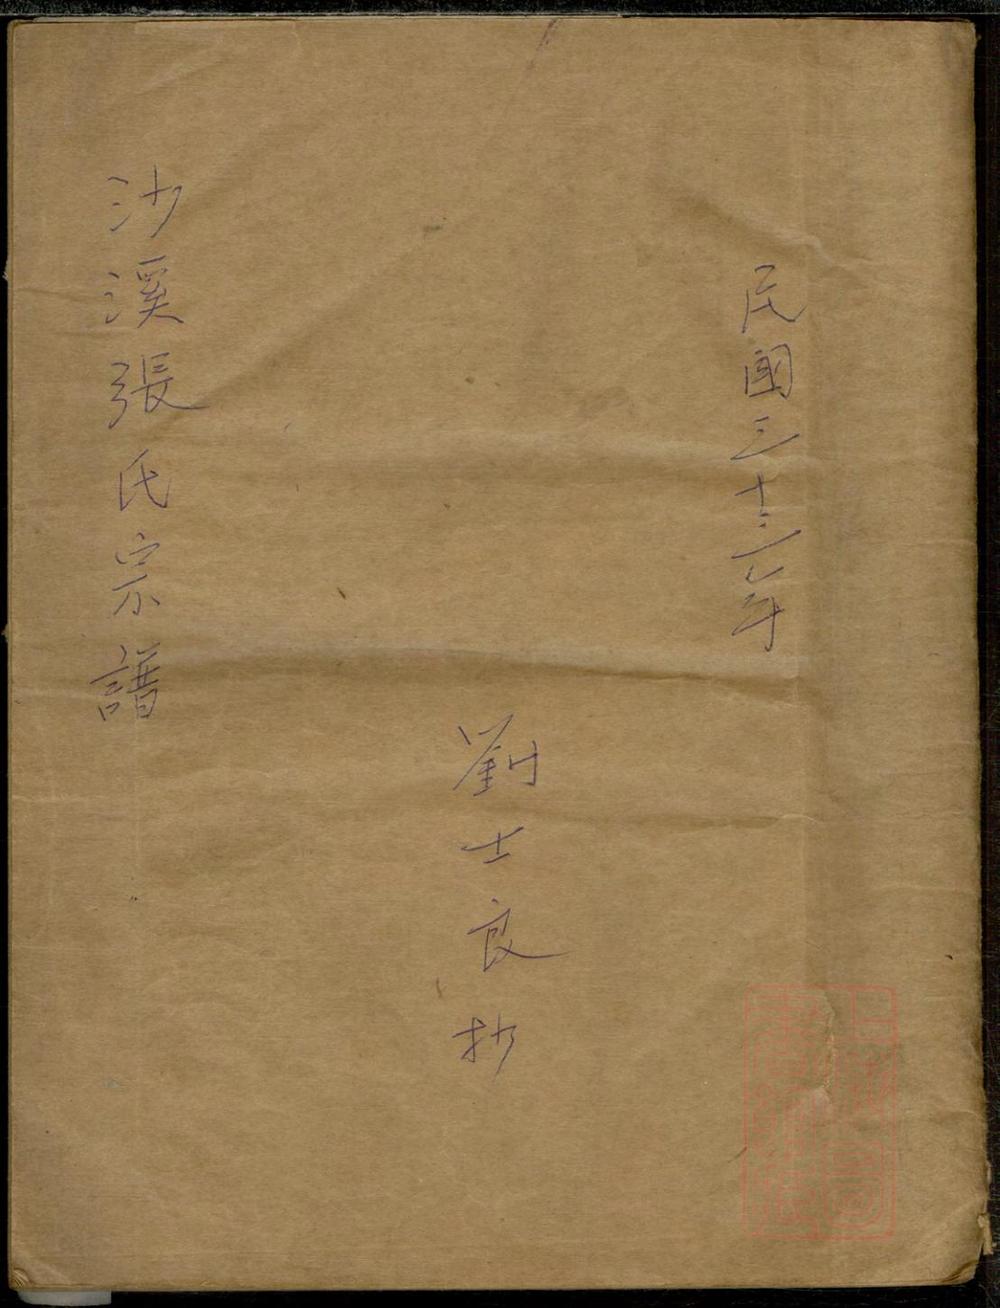 民國三十三年
劉士良抄
沙溪張氏宗譜